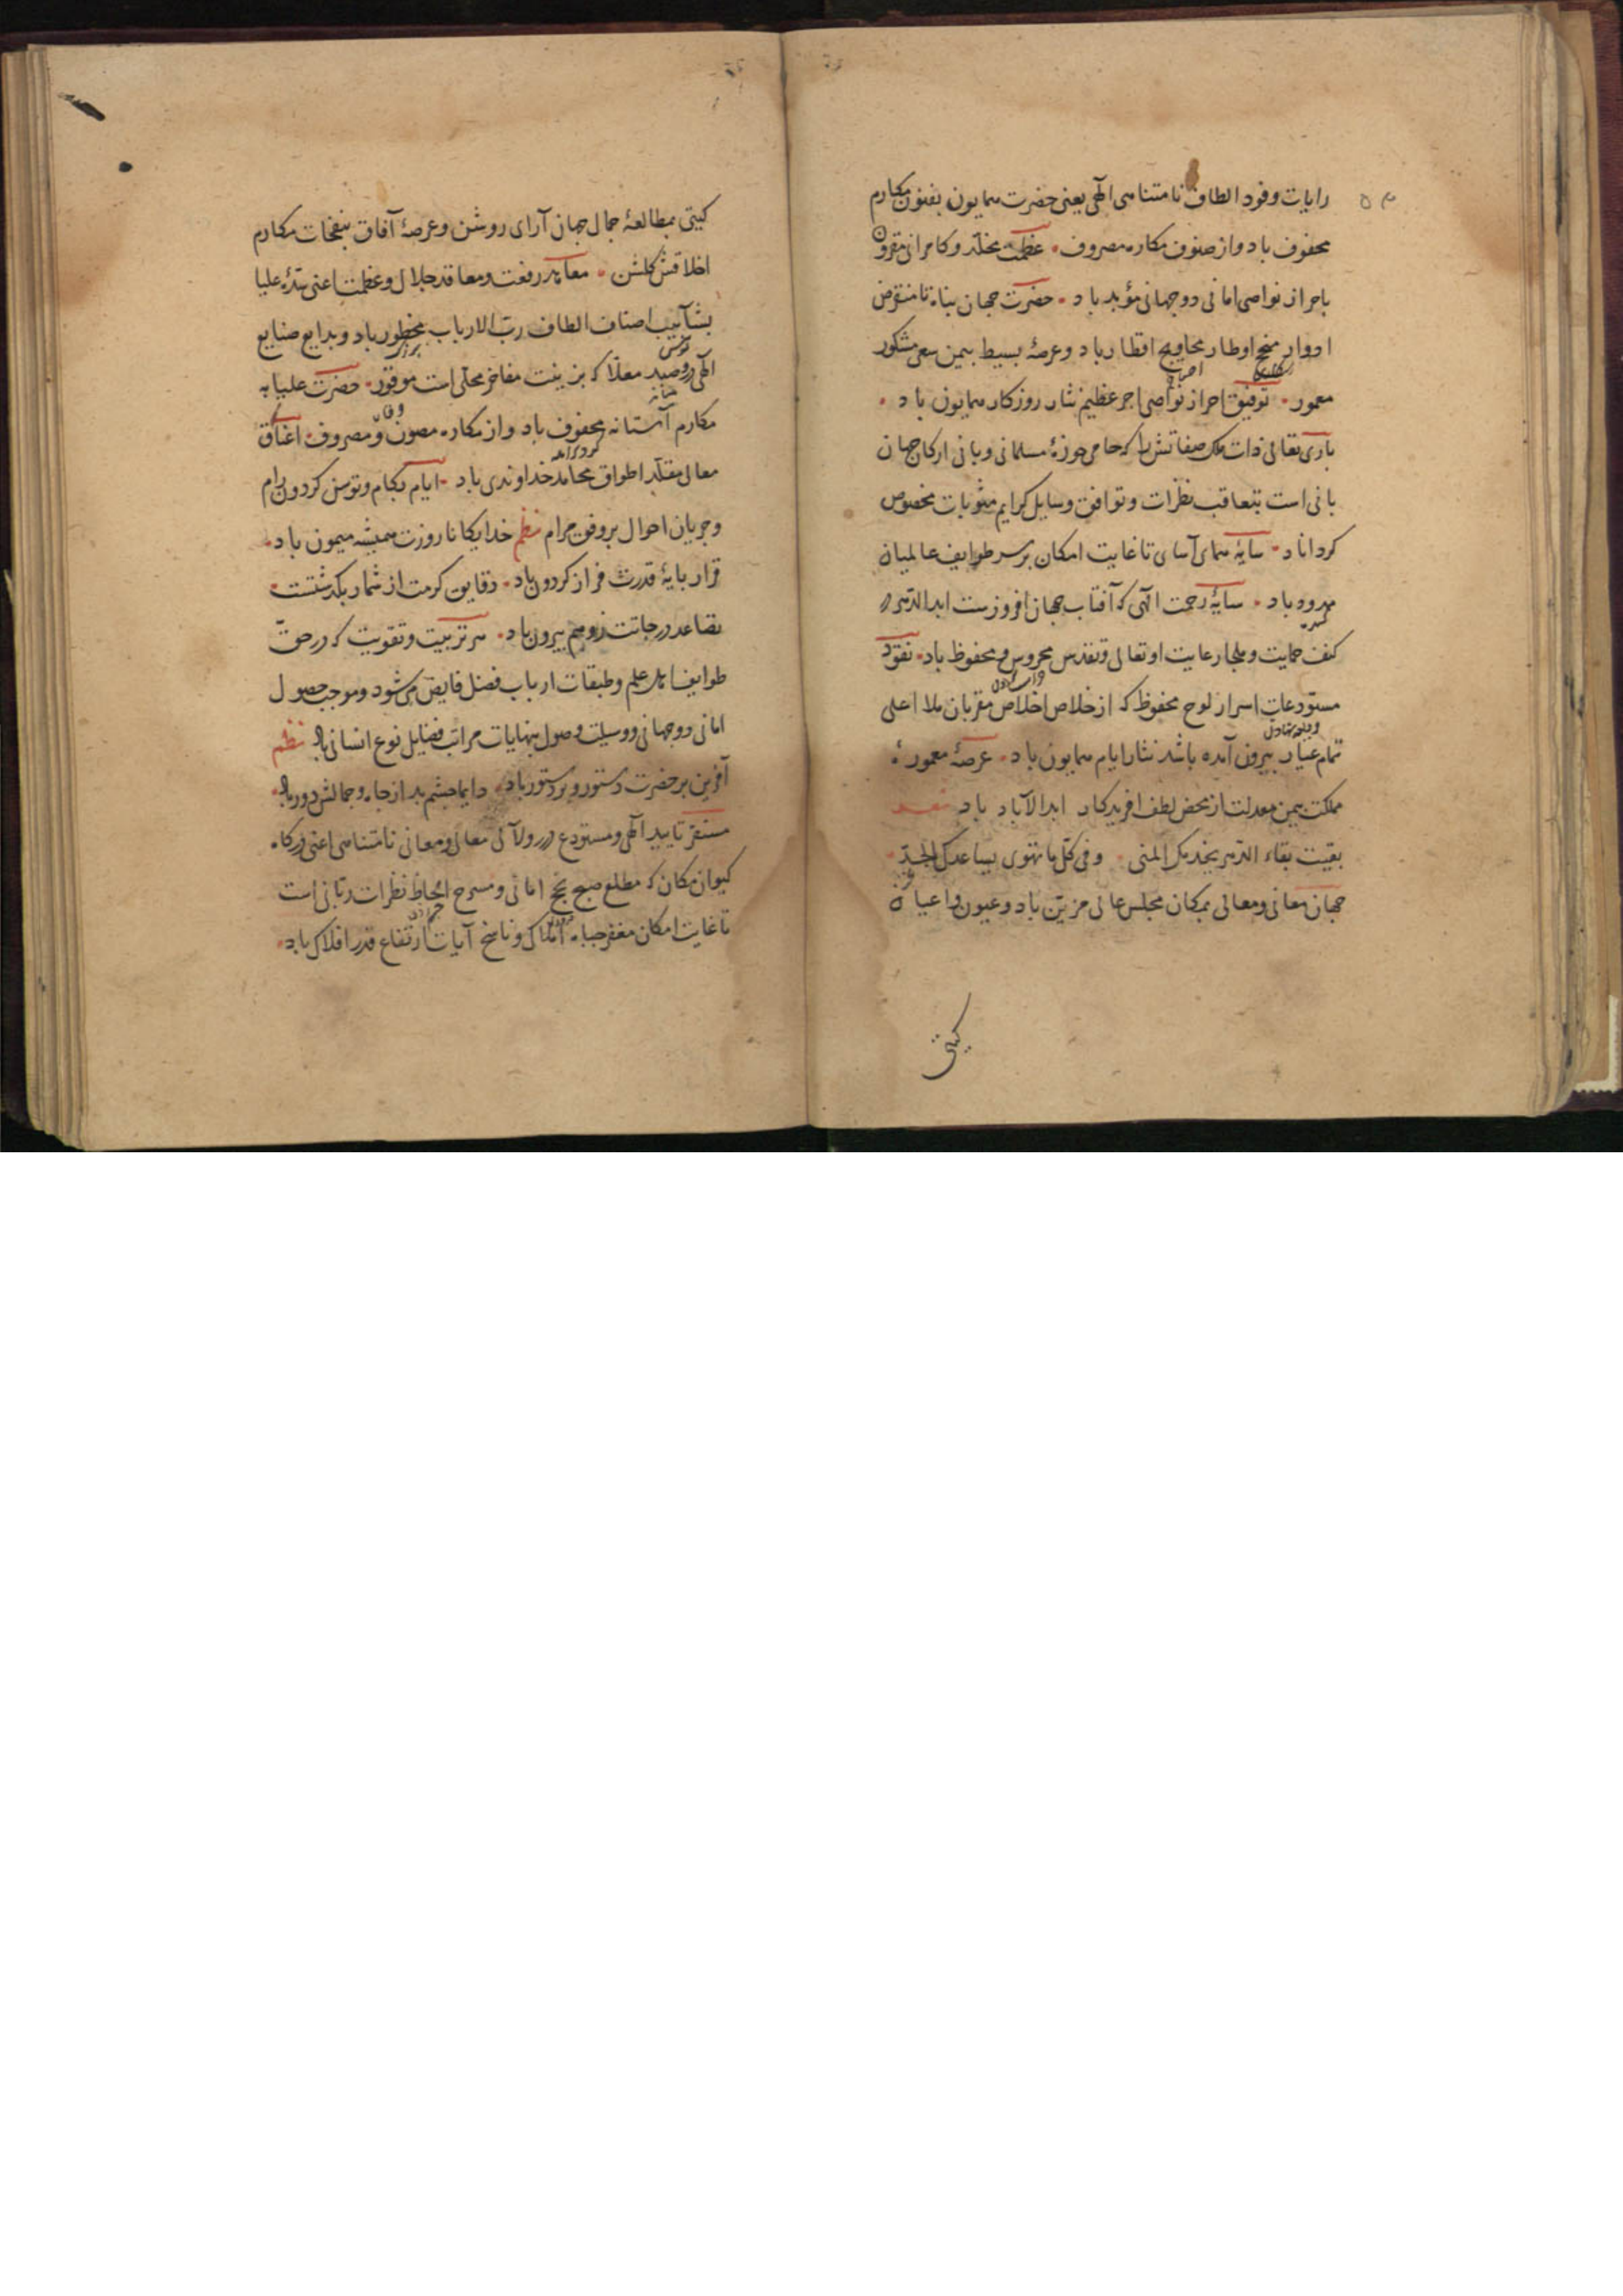 رایات وفود الطاف نامتناهی الهی یعنی حضرت همایون بفنون مکارم
محفوف باد واز صنوف مکاره مصروف عظمت مخلد و کامرانی مقرون
باحراز نواصی امانی دو جهانی مؤبد باد حضرت جهان پناه تا منقرض
ادوار منجح اوطار محاویج اقطار باد وعرصهٔ بسیط بیمن سعی مشکور
معمور توفیق احراز نواصی اجر عظیم نثار روزکار همایون باد
باری تعالی ذات ملک صفاتش را که حامی حوزهٔ مسلمانی و بانی ارکان جهان
بانی است بتعاقب نظرات وتوافق وسایل کرایم مثوبات مخصوص
کرداناد سایهٔ همای آسای تا غایت امکان بر سر طوایف عالمیان
ممدود باد سایهٔ رحمت الهی که آفتاب جهان افروزست ابد الدهر در
کنف حمایت وملجا رعایت او تعالی وتقدس محروس و محفوظ باد نقود
مستودعات اسرار لوح محفوظ که از خلاص اخلاص مقربان ملا اعلی
تمام عیار بیرون آمده باشد نثار ایام همایون باد عرصهٔ معمورهٔ
مملکت بیمن معدلت از محض لطف افریدکار ابد الآباد باد
بقیت بقاء الدهر یخدمک المنی وفی کل ما تهوی یساعدک الجد
جهان معانی ومعالی بمکان مجلس عالی مزین باد وعیون واعیان
کیتی
کیتی بمطالعهٔ جمال جهان آرای روشن وعرصهٔ آفاق بنفحات مکارم
اخلاقش کلشن معاهد رفعت ومعاقد جلال وعظمت اعنی سدهٔ علیا
بشآبیب اصناف الطاف رب الارباب باد وبدایع صنایع
الهی در وصید معلا که بزینت مفاخر محلی است موفور حضرت علیا به
مکارم آستانه محفوف باد واز مکاره مصون و مصروف اعناق
معالی مقلد اطواق محامد خداوندی باد ایام بکام وتوسن کردون رام
وجریان احوال بر وفق مرام نظم خدایکانا روزت همیشه میمون باد
قرار پایهٔ قدرت فراز کردون باد دقایق کرمت از شمار بکذشتست
تصاعد درجاتت ز وهم بیرون باد هر تربیت وتقویت که در حق
طوایف اهل علم وطبقات ارباب فضل فایض می شود وموجب حصول
امانی دو جهانی ووسیلت وصول بنهایات مراتب فضایل نوع انسانی باد نظم
آفرین بر حضرت دستور و بر دستور باد دایما چشم بد از جاه وجمالش دور باد
مستقر تایید الهی ومستودع درر ولآلی معالی ومعانی نامتناهی اعنی درکاه
کیوان مکان که مطلع صبح نجح امانی ومسرح الحاظ نظرات ربانی است
تا غایت امکان معفر جباه املاک و ناسخ آیات ارتفاع قدر افلاک باد